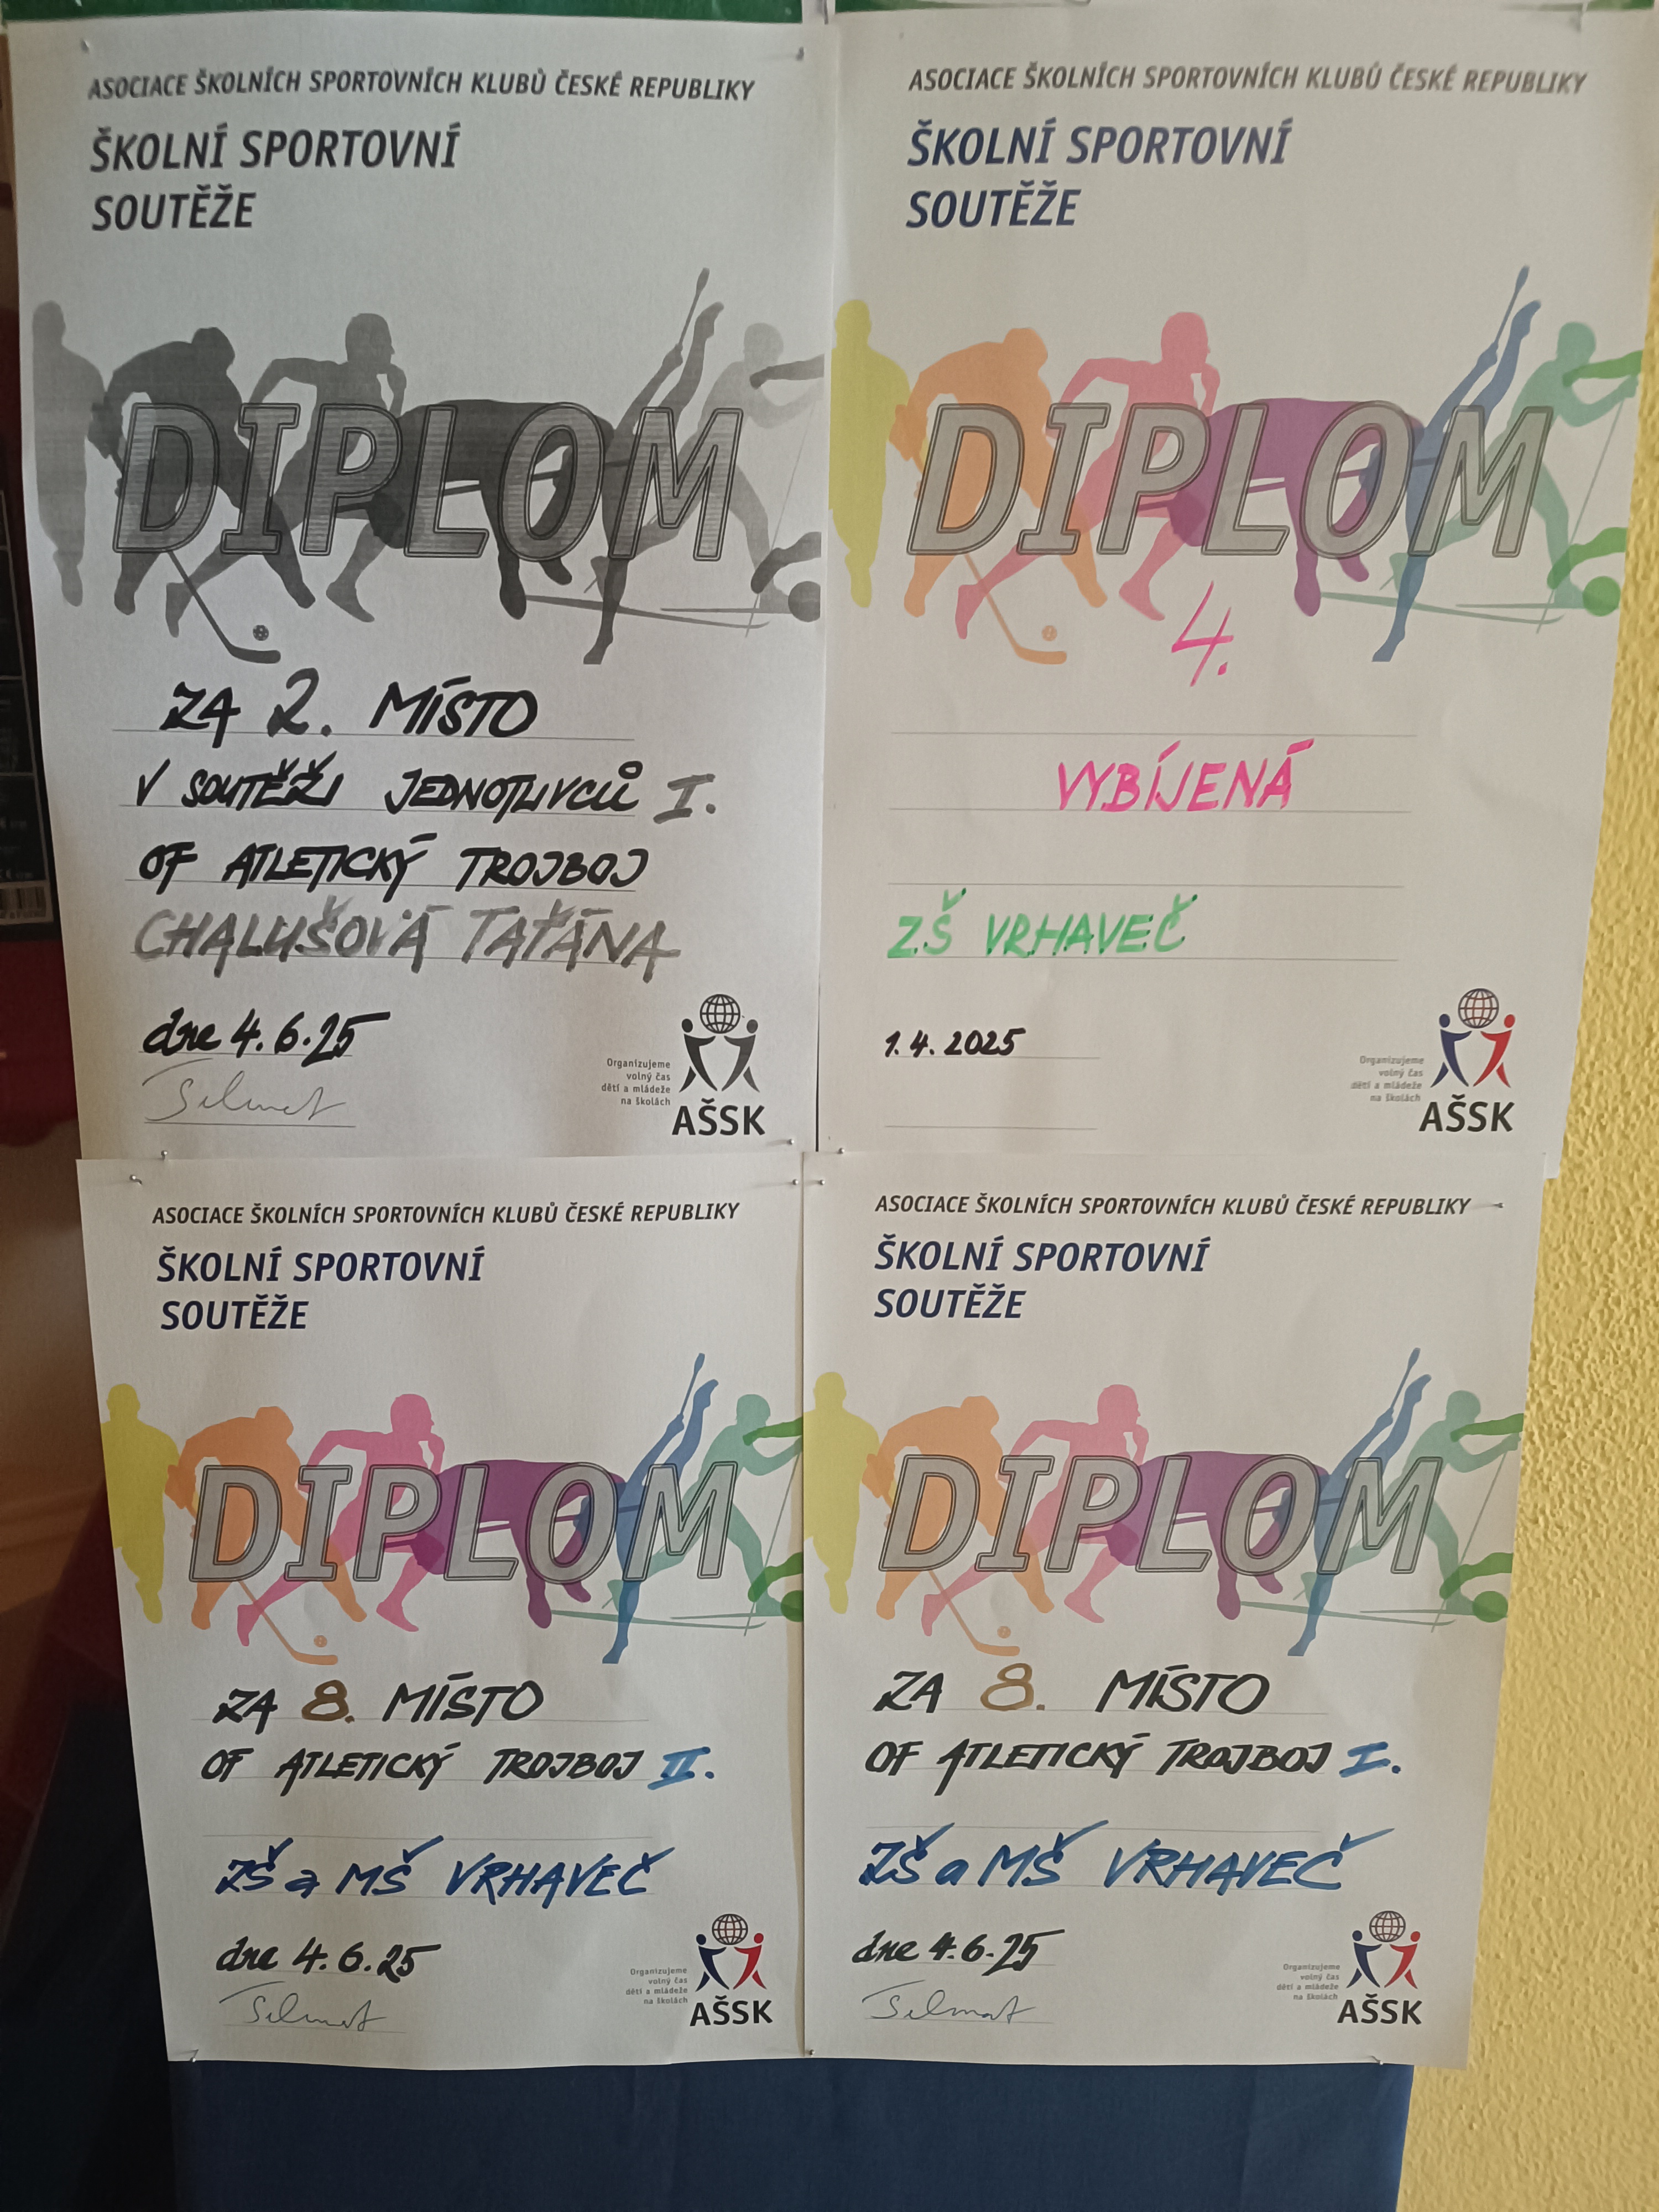 ASOCIACE ŠKOLNÍCH SPORTOVNÍCH KLUBŮ ČESKÉ REPUBLIKY
ŠKOLNÍ SPORTOVNÍ
SOUTĚŽE
DIPLOM
ZA 2. MÍSTO
V SOUTĚŽI JEDNOTLIVCŮ I.
OF ATLETICKÝ TROJBOJ
CHALUŠOVÁ TAŤÁNA
dne 4.6.25
Organizujeme
volný čas
dětí a mládeže
na školách
AŠSK
ASOCIACE ŠKOLNÍCH SPORTOVNÍCH KLUBŮ ČESKÉ REPUBLIKY
ŠKOLNÍ SPORTOVNÍ
SOUTĚŽE
DIPLOM
4.
VYBÍJENÁ
ZŠ VRHAVEČ
1.4.2025
Organizujeme
volný čas
dětí a mládeže
na školách
AŠSK
ASOCIACE ŠKOLNÍCH SPORTOVNÍCH KLUBŮ ČESKÉ REPUBLIKY
ŠKOLNÍ SPORTOVNÍ
SOUTĚŽE
DIPLOM
ZA 8. MÍSTO
OF ATLETICKÝ TROJBOJ II.
ZŠ a MŠ VRHAVEČ
dne 4.6.25
Organizujeme
volný čas
dětí a mládeže
na školách
AŠSK
ASOCIACE ŠKOLNÍCH SPORTOVNÍCH KLUBŮ ČESKÉ REPUBLIKY
ŠKOLNÍ SPORTOVNÍ
SOUTĚŽE
DIPLOM
ZA 8. MÍSTO
OF ATLETICKÝ TROJBOJ I.
ZŠ a MŠ VRHAVEČ
dne 4.6.25
Organizujeme
volný čas
dětí a mládeže
na školách
AŠSK